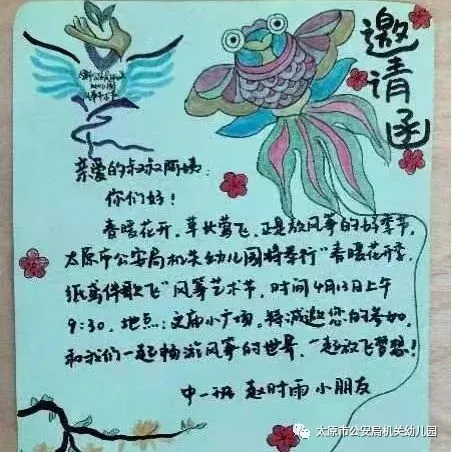 邀请函
亲爱的叔叔阿姨：
你们好！
春暖花开，草长莺飞，正是放风筝的好季节，
太原市公安局机关幼儿园将举行“春暖花开季，
纸鸢伴歌飞”风筝艺术节，时间4月13日上午
9:30，地点：文庙小广场，特诚邀您的参加，
和我们一起畅游风筝的世界，一起放飞梦想！
中一班 赵时雨 小朋友
太原市公安局机关幼儿园